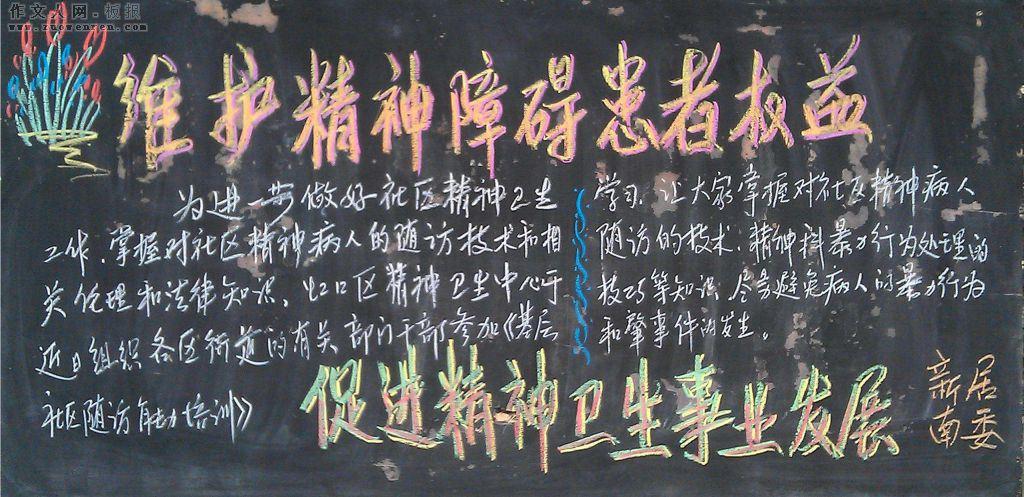 作文人网-板报
www.zuowenren.com
维护精神障碍患者权益
为进一步做好社区精神卫生
工作、掌握对社区精神病人的随访技术和相
关伦理和法律知识、虹口区精神卫生中心于
近日组织各区街道的有关部门干部参加《基层
社区随访能力培训》
学习、让大家掌握对社区精神病人
随访的技术、精神科暴力行为处理的
技巧等知识、尽务避免病人的暴力行为
和肇事件的发生。
促进精神卫生事业发展
新居
南委